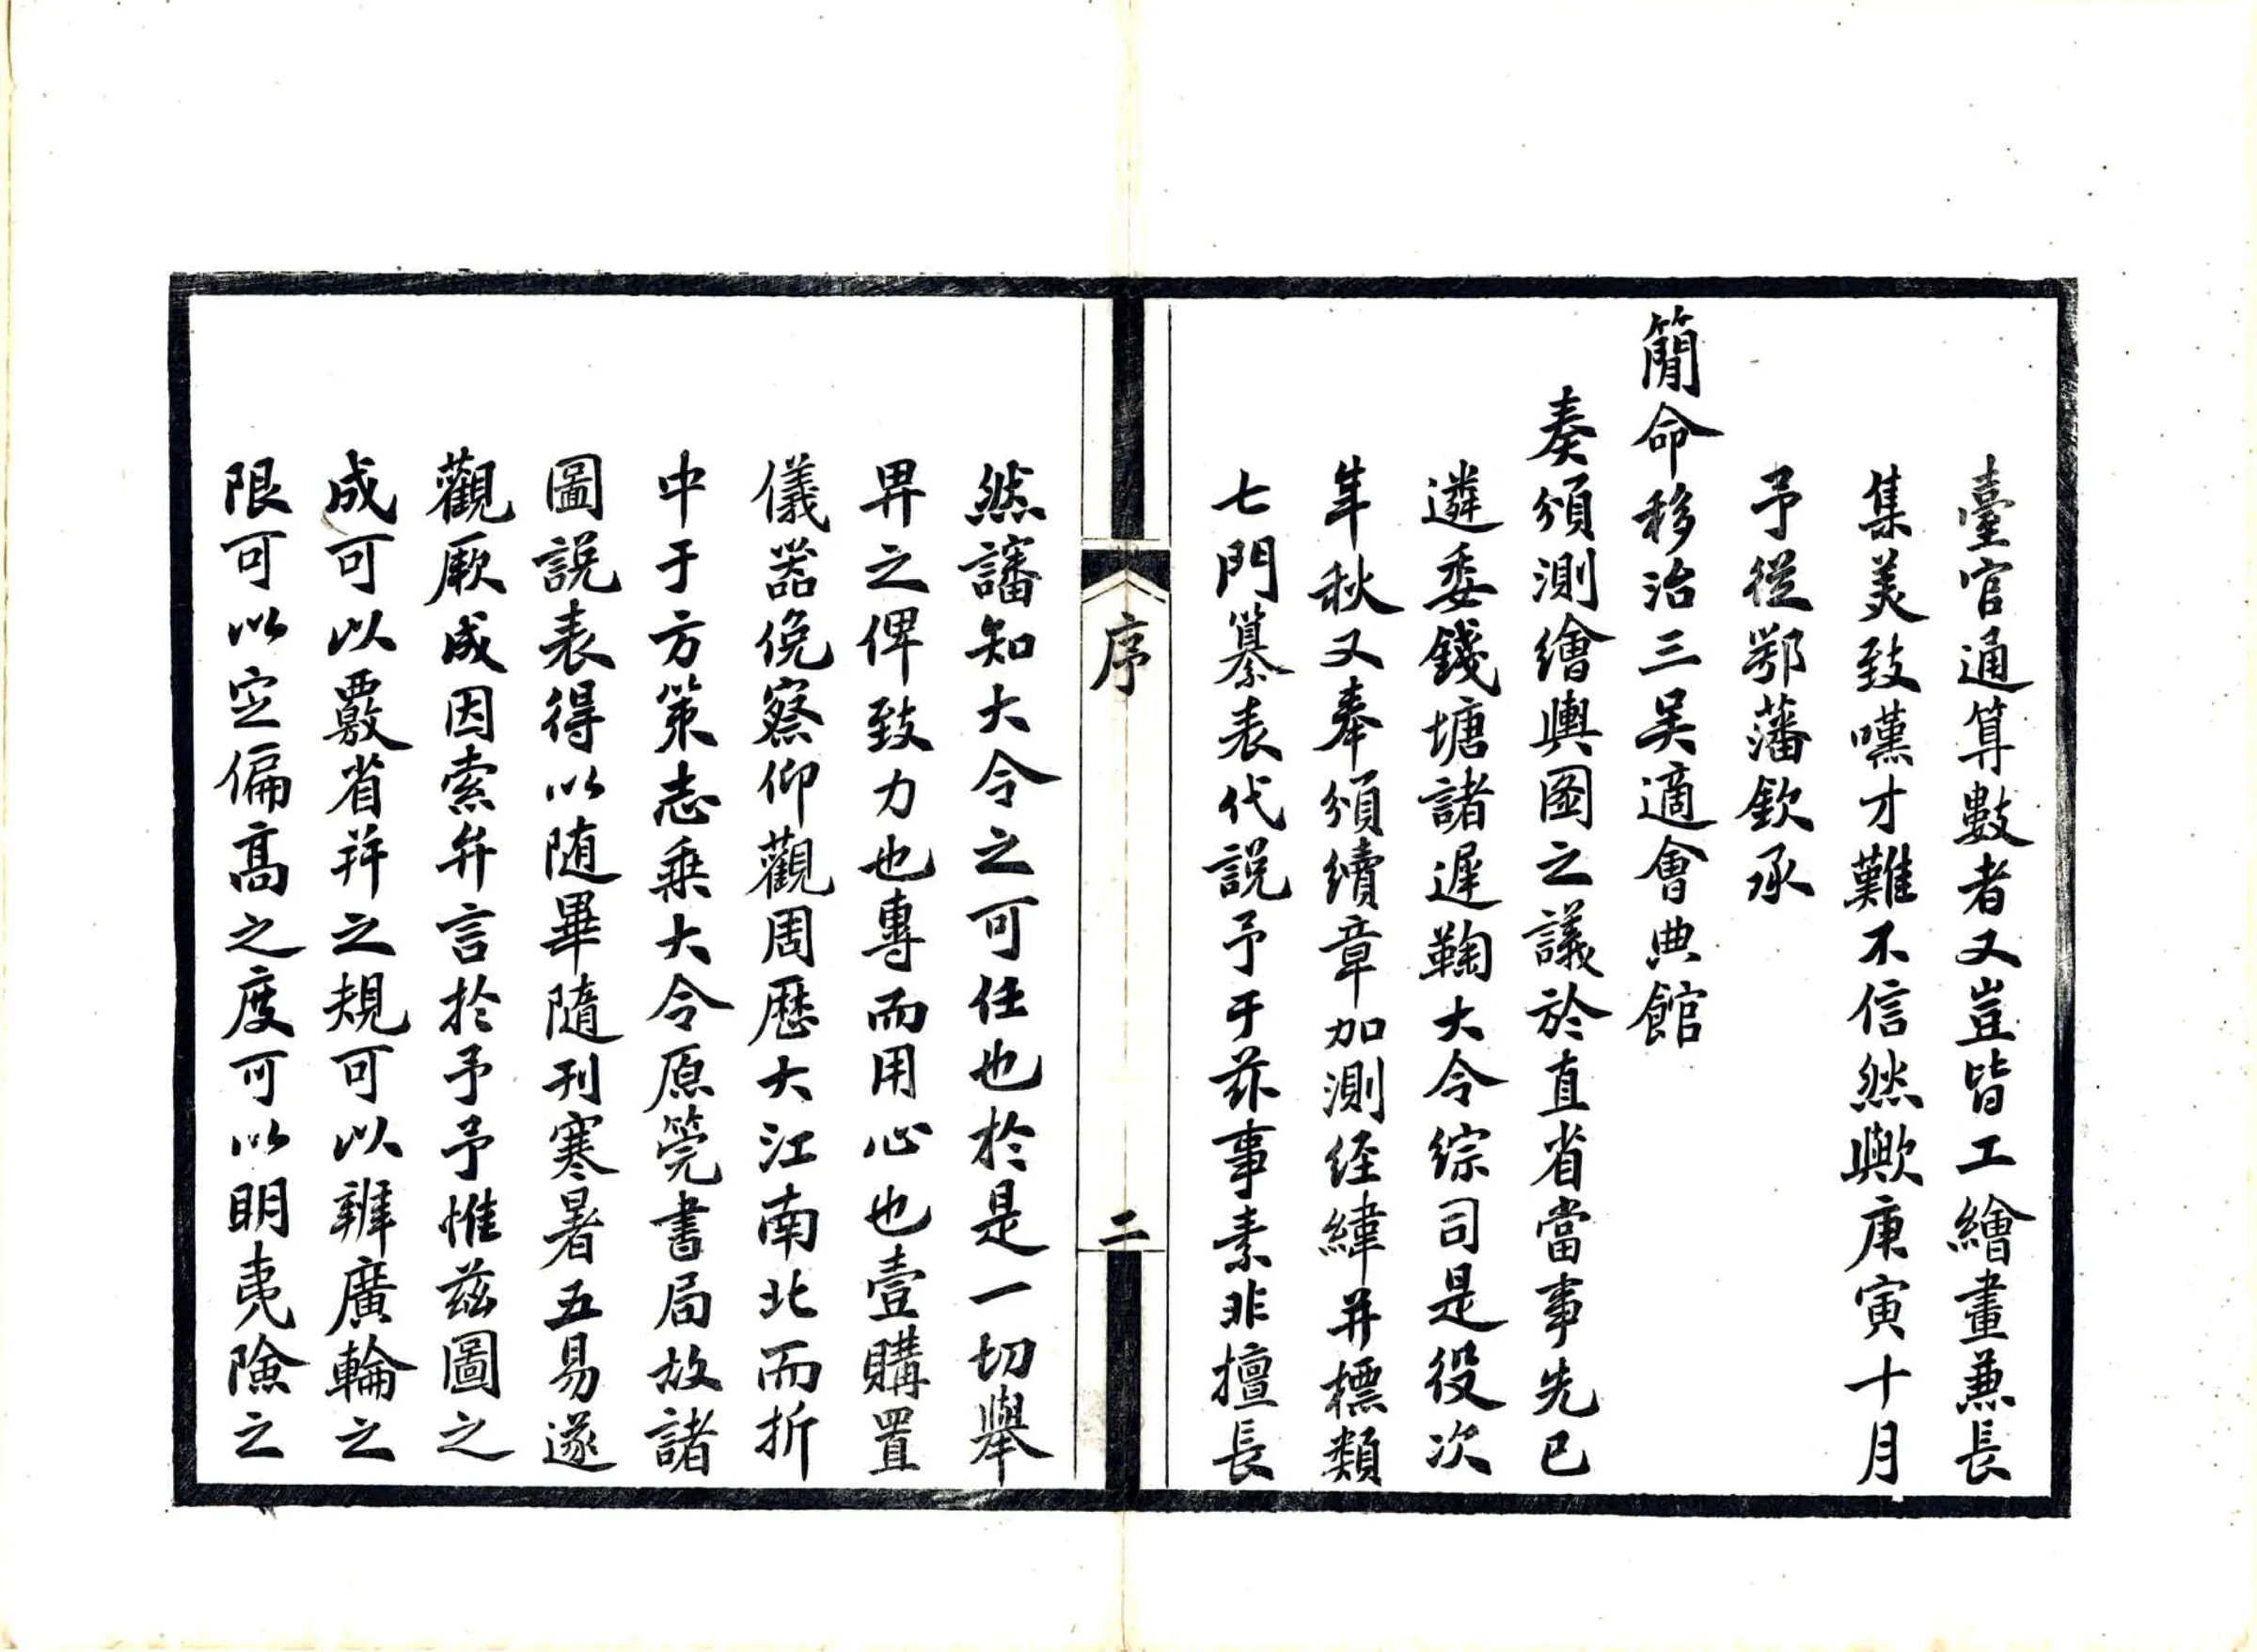 臺官通算數者又豈皆工繪畫兼長
集美致嘆才難不信然歟庚寅十月
予從鄂藩欽承
簡命移治三吳適會典館
奏頒測繪輿圖之議於直省當事先已
遴委錢塘諸遲鞠大令綜司是役次
年秋又奉頒續章加測經緯并標類
七門纂表代説予于茲事素非擅長
序
二
然諳知大令之可任也於是一切舉
畀之俾致力也專而用心也壹購置
儀器俛察仰觀周歷大江南北而折
中于方策志乘大令原筦書局故諸
圖説表得以随畢隨刊寒暑五易遂
觀厥成因索弁言於予予惟兹圖之
成可以覈省并之規可以辨廣輪之
限可以定偏高之度可以明夷險之